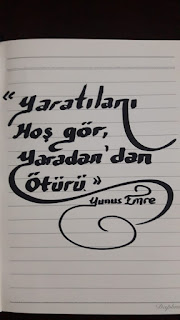 « Yaratılanı
Hoş gör,
Yaradan'dan
Ötürü »
Yunus Emre